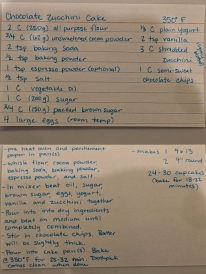 Chocolate Zucchini Cake 350°F
2 C (250g) all purpose flour
3/4 C (62g) unsweetened cocoa powder
2 tsp baking soda
1/2 tsp baking powder
1 tsp espresso powder (optional)
1/2 tsp salt
1 C vegetable oil
1 C (200g) sugar
3/4 C (150g) packed brown sugar
4 large eggs (room temp)
1/3 C plain yogurt
2 tsp vanilla
3 C shredded
zucchini
1 C semi-sweet
chocolate chips
- pre heat oven and parchment
paper in pan(s)
- whisk flour, cocoa powder,
baking soda, baking powder,
espresso powder, and salt.
- In mixer beat oil, sugar,
brown sugar, eggs, yogurt,
vanilla and zucchini together
- Pour into dry ingredients
and beat on medium until
completely combined.
- Stir in chocolate chips. Batter
will be slightly thick.
- Pour into cake pan(s). Bake
@ 350°F for 28-32 min. Toothpick
comes clean when done.
- makes 1 9x13
2 9" round
24-30 cupcakes
(bake for 18-22
minutes)